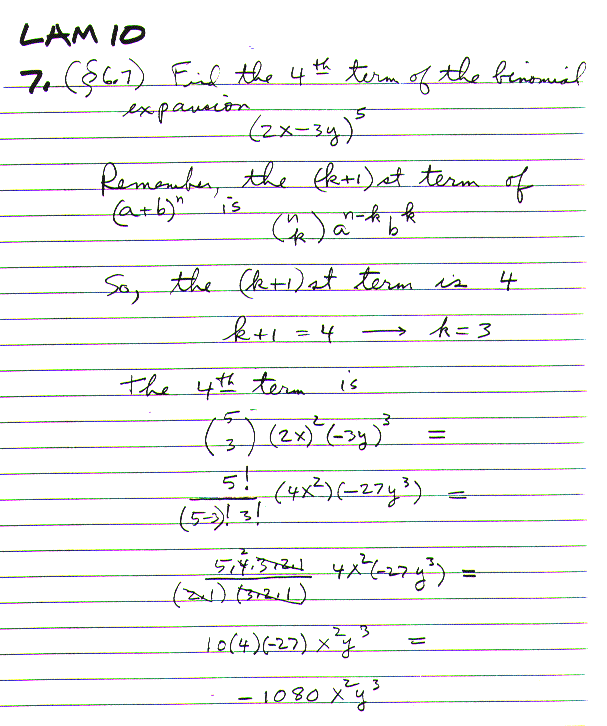 LAM 10
7. (§6.7) Find the 4th term of the binomial
expansion
(2x-3y)^5
Remember, the (k+1)st term of
(a+b)^n is
(n k) a^{n-k} b^k
So, the (k+1)st term is 4
k+1 = 4 → k=3
The 4th term is
(5 3) (2x)^2 (-3y)^3 =
5!/((5-3)! 3!) (4x^2)(-27y^3) =
5·4·3·2·1/((2·1)(3·2·1)) 4x^2(-27y^3) =
10(4)(-27) x^2y^3 =
-1080 x^2y^3